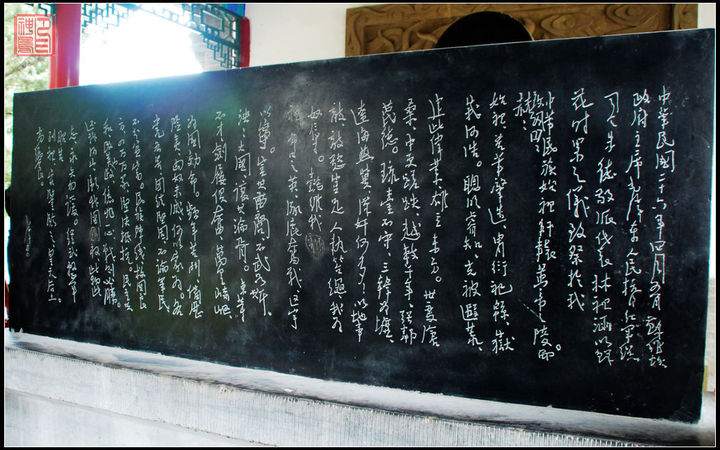 中華民國二十六年四月五日蘇維埃
政府主席毛澤東人民抗日紅軍總
司令朱德敬派代表林祖涵以鮮
花时果之儀致祭於我
中華民族始祖軒轅黄帝之陵而
致詞曰
赫赫
始祖吾華肇造。胄衍祀緜、嶽
峨河浩。聰明睿知、光被遐荒、
建此偉業、雄立東方。世變滄
桑、中更蹉跌、越數千年、强鄰
蔑德。琉臺不守、三韓为墟、
遼海燕冀、漢奸何多！以地事
敵、敵欲豈足、人執笞繩、我为
奴辱。懿維我
祖、命世之英、涿鹿奮戰、區宇
以寧。豈其苗裔、不武如斯、
泱泱大國、讓其淪胥。東等
不才、劍屨俱奮、萬里崎嶇、
为國効命。頻年苦鬥、備歷
險夷、匈奴未滅、何以家为。各
党各界、團結堅固、不論軍民、
不分貧富。民族陣綫、救國良
方、四万万众、坚决抵抗。民主共
和、改革內政、億兆一心、戰則必勝。
還我河山、衛我國權、此物此
志、永矢勿諼。經武整軍、
昭告
列祖、實鑒臨之、皇天后土。
尚饗。